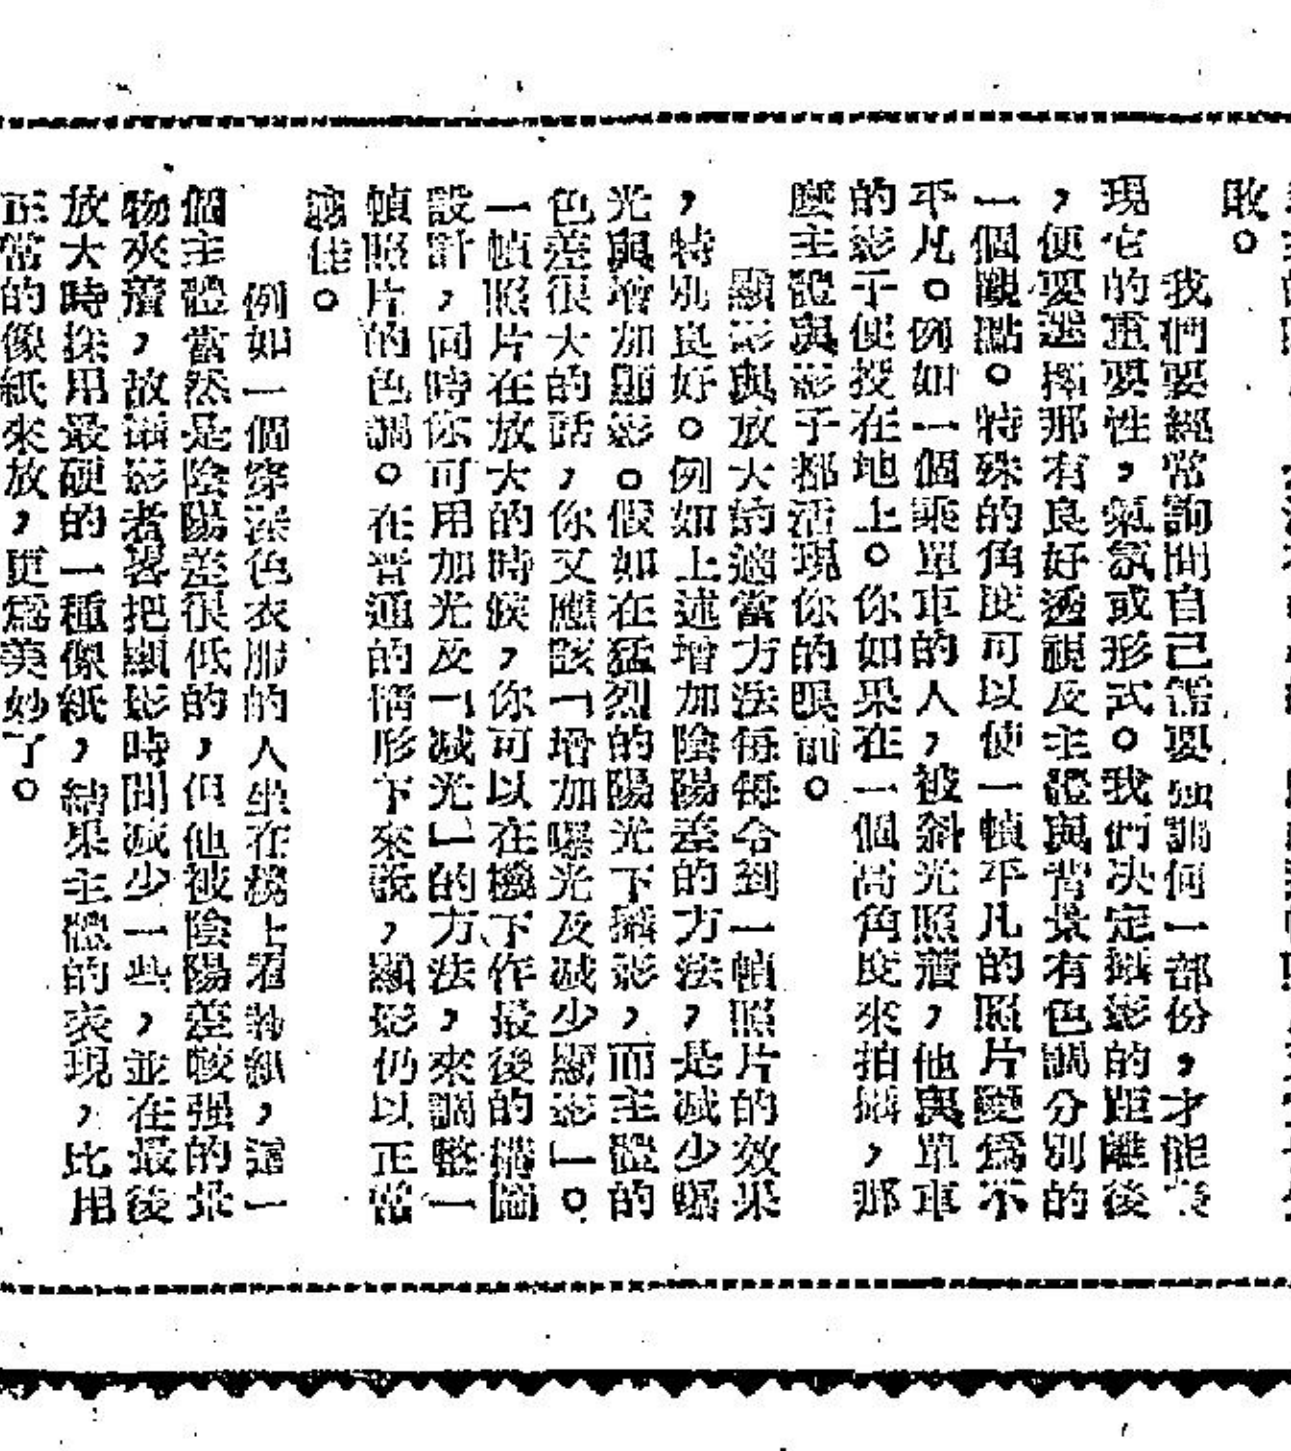 敗。
我們要經常詢問自己需要強調何一部份，才能表
現它的重要性，氣氛或形式。我們决定攝影的距離後
，便要選擇那有良好透視及主體與背景有色調分別的
一個觀點。特殊的角度可以使一幀平凡的照片變爲不
平凡。例如一個乘單車的人，被斜光照着，他與單車
的影子便投在地上。你如果在一個高角度來拍攝，那
麼主體與影子都活現你的眼前。
顯影與放大的適當方法每每令到一幀照片的效果
，特別良好。例如上述增加陰陽差的方法，是減少曝
光與增加顯影。假如在猛烈的陽光下攝影，而主體的
色差很大的話，你又應該「增加曝光及减少顯影」。
一幀照片在放大的時候，你可以在機下作最後的構圖
設計，同時你可用加光及「减光」的方法，來調整一
幀照片的色調。在普通的情形下來說，顯影仍以正常
爲佳。
例如一個穿深色衣服的人坐在櫈上看報紙，這一
個主體當然是陰陽差很低的，但他被陰陽差較强的景
物夾着，故攝影者畧把顯影時間减少一些，並在最後
放大時採用最硬的一種像紙，結果主體的表現，比用
正常的像紙來放，更爲美妙了。